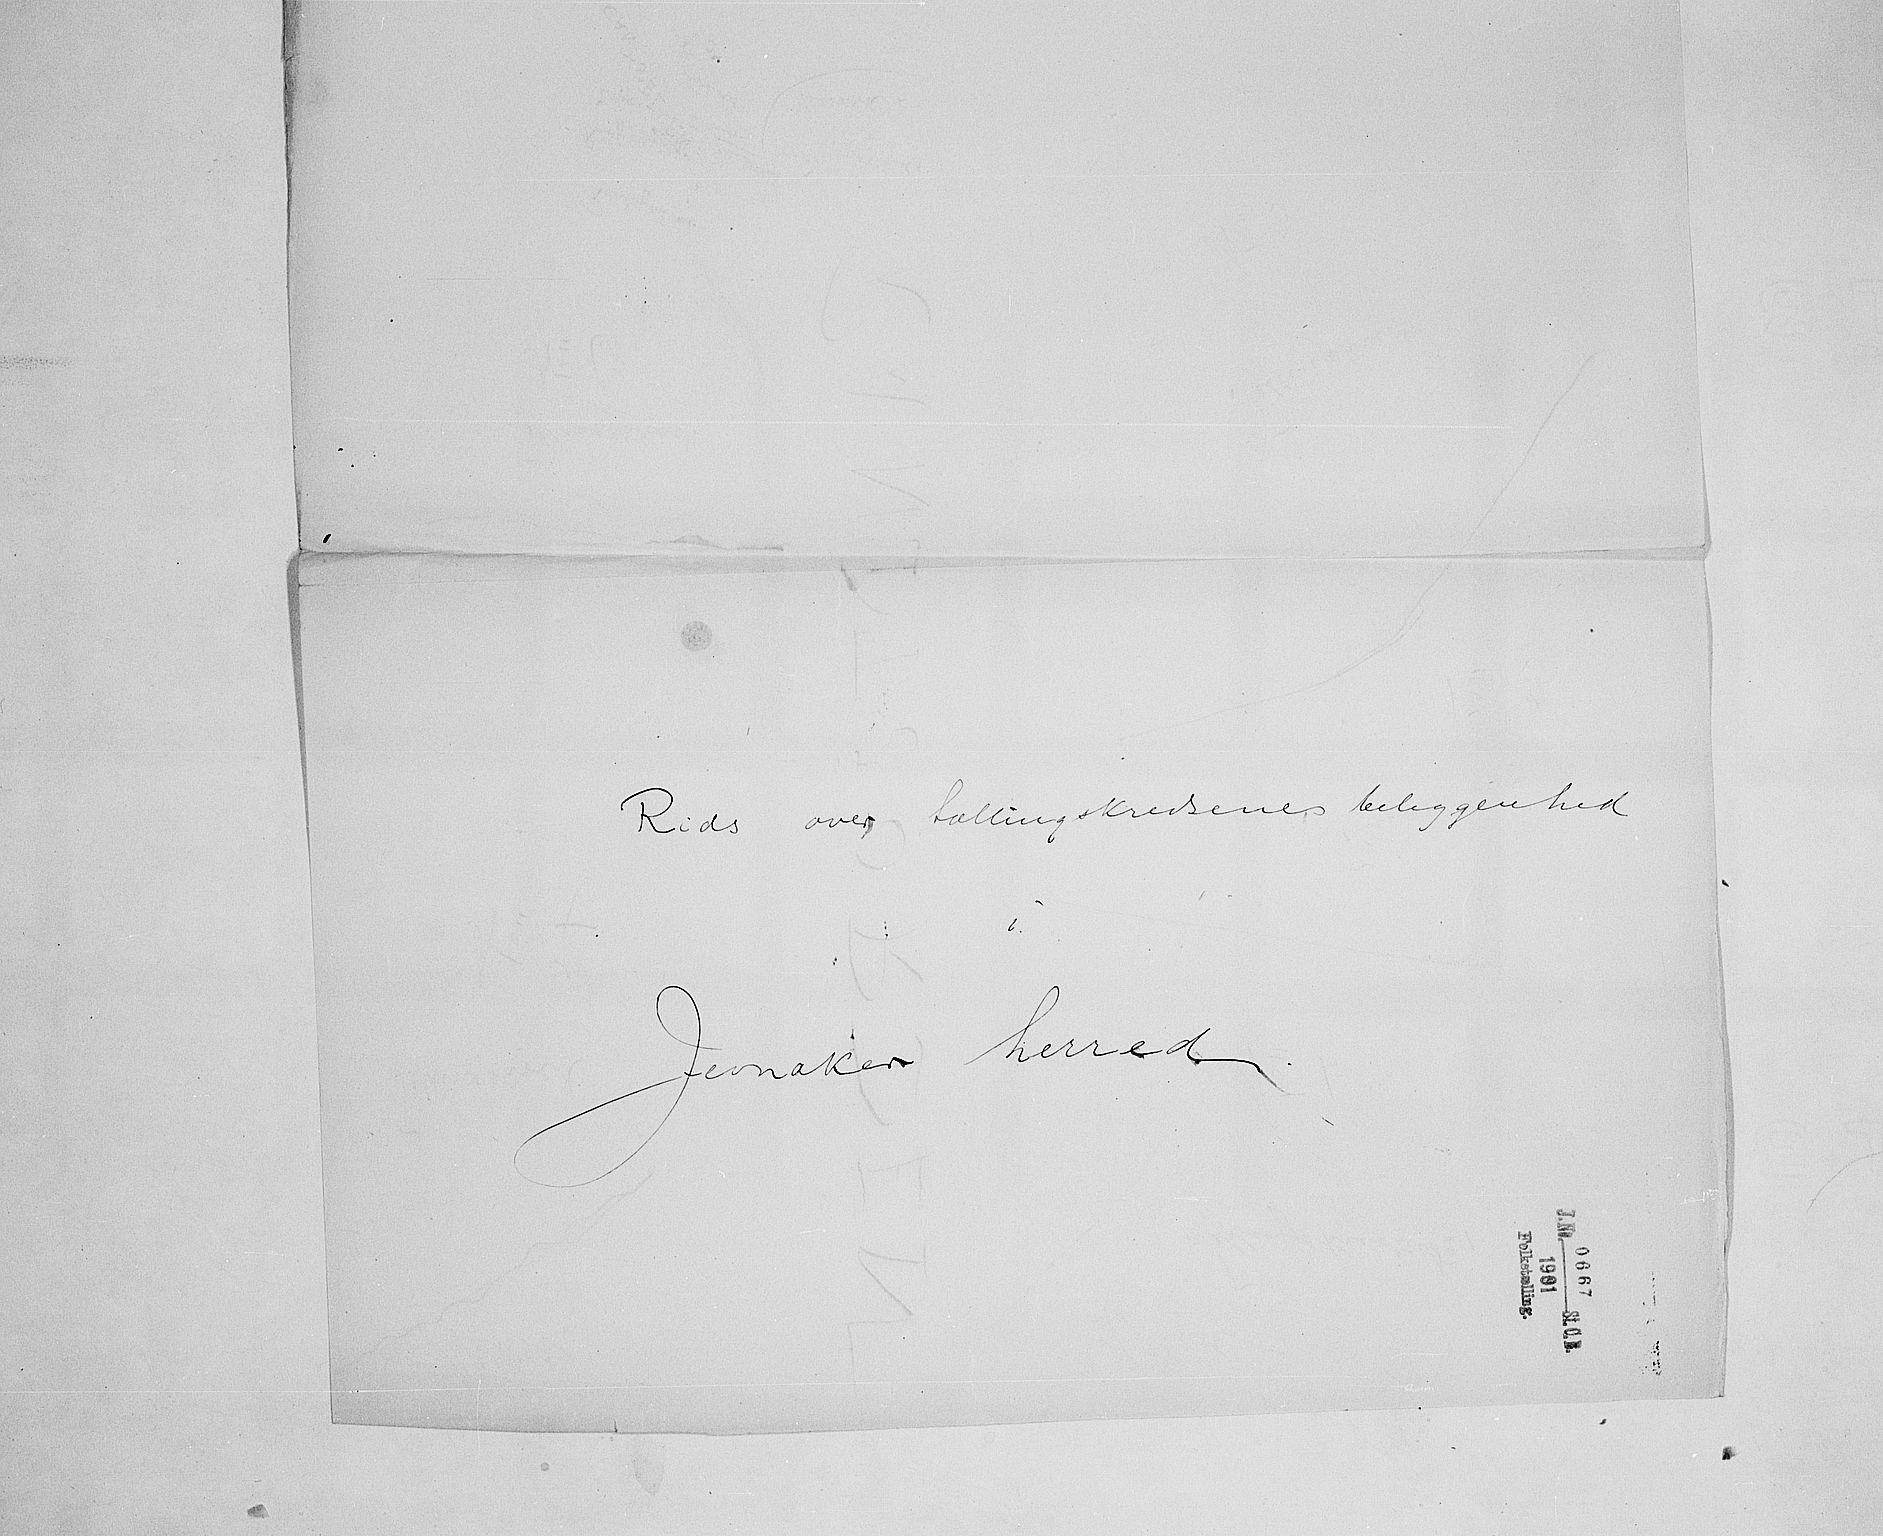 Rids over tællingskredsenes beliggenhed
i
Jevnaker herred.
J.No. 0667 St.C.B.
1901
Folketælling.